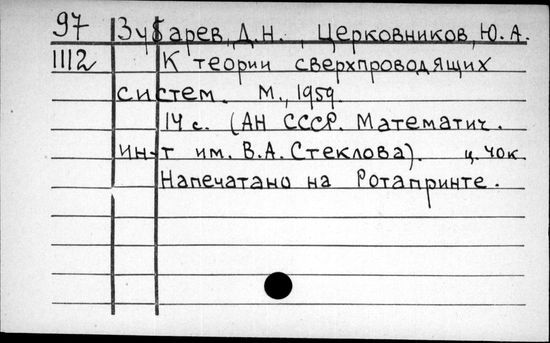 97 Зубарев, Д.Н., Церковников, Ю.А.
1112 К теории сверхпроводящих
систем. М., 1959.
14 с. (АН СССР. Математич.
ин-т им. В.А. Стеклова). ц. 40к.
Напечатано на Ротапринте.